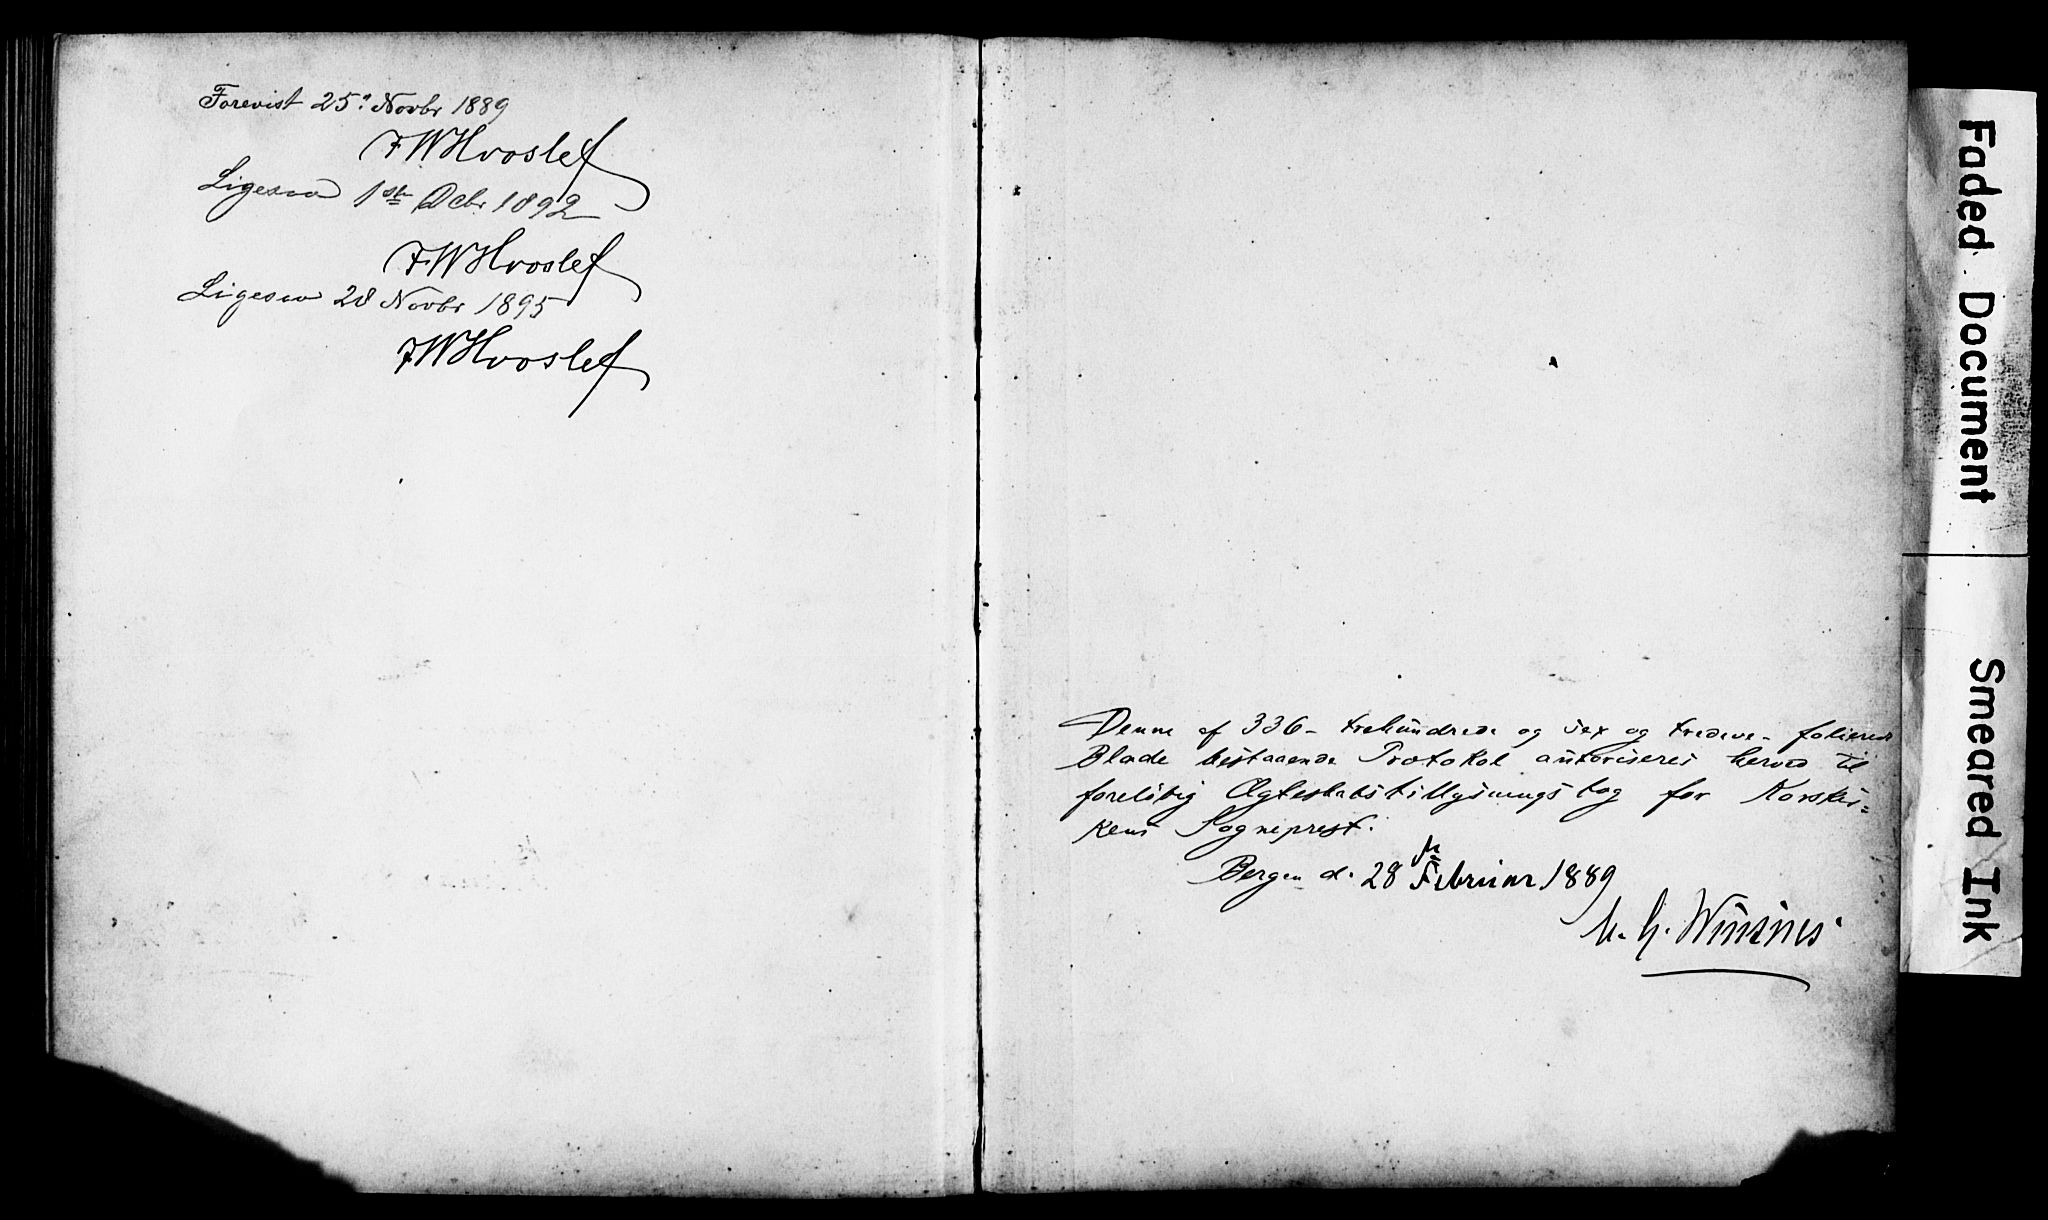 Forevist 25. Novbr 1889
FW Hvoslef
Ligesaa 1ste Decbr 1892
FW Hvoslef
Ligesaa 28 Novbr 1895
FW Hvoslef
Denne af 336 - trehundrede og sex og tredeve - folierede
Blade bestaaende Protokol autoriseres herved til
foreløbig Ægteskabstillysningsbog for Korskir=
kens Sogneprest.
Bergen d. 28 Februar 1889
Winsnes
Faded Document
Smeared Ink